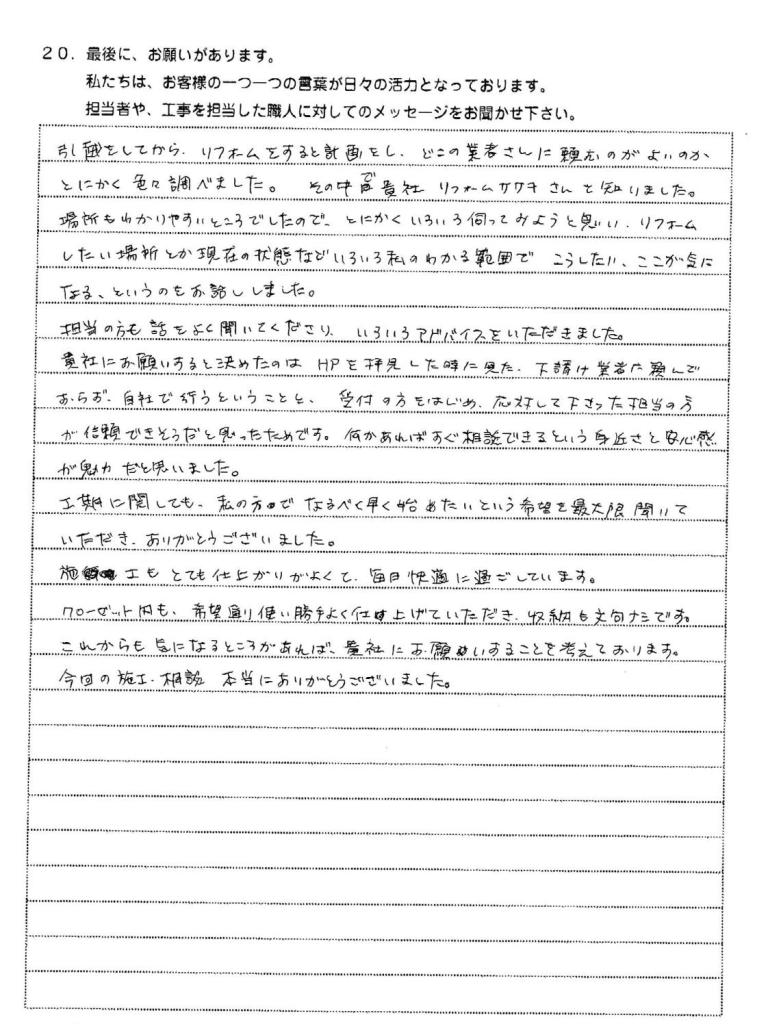 20. 最後に、お願いがあります。
私たちは、お客様の一つ一つの言葉が日々の活力となっております。
担当者や、工事を担当した職人に対してのメッセージをお聞かせ下さい。
引越をしてから、リフォームをすると計画をし、どこの業者さんに頼むのがよいのか
とにかく色々調べました。 その中で貴社 リフォームサワキさんを知りました。
場所もわかりやすいところでしたので、とにかくいろいろ伺ってみようと思い、リフォーム
したい場所とか現在の状態などいろいろ私のわかる範囲で こうしたい、ここが気に
なる、というのをお話ししました。
担当の方も話をよく聞いてくださり、いろいろアドバイスをいただきました。
貴社にお願いすると決めたのは HPを拝見した時に見た、下請け業者に頼んで
おらず、自社で行うということと、受付の方をはじめ、応対して下さった担当の方
が信頼できそうだと思ったためです。何かあればすぐ相談できるという身近さと安心感
が魅力だと思いました。
工期に関しても、私の方で なるべく早く始めたいという希望を最大限聞いて
いただき、ありがとうございました。
施工もとても仕上がりがよくて、毎日快適に過ごしています。
クローゼット内も、希望通り使い勝手よく仕上げていただき、収納も文句ナシです。
これからも気になるところがあれば、貴社にお願いすることを考えております。
今回の施工・相談 本当にありがとうございました。